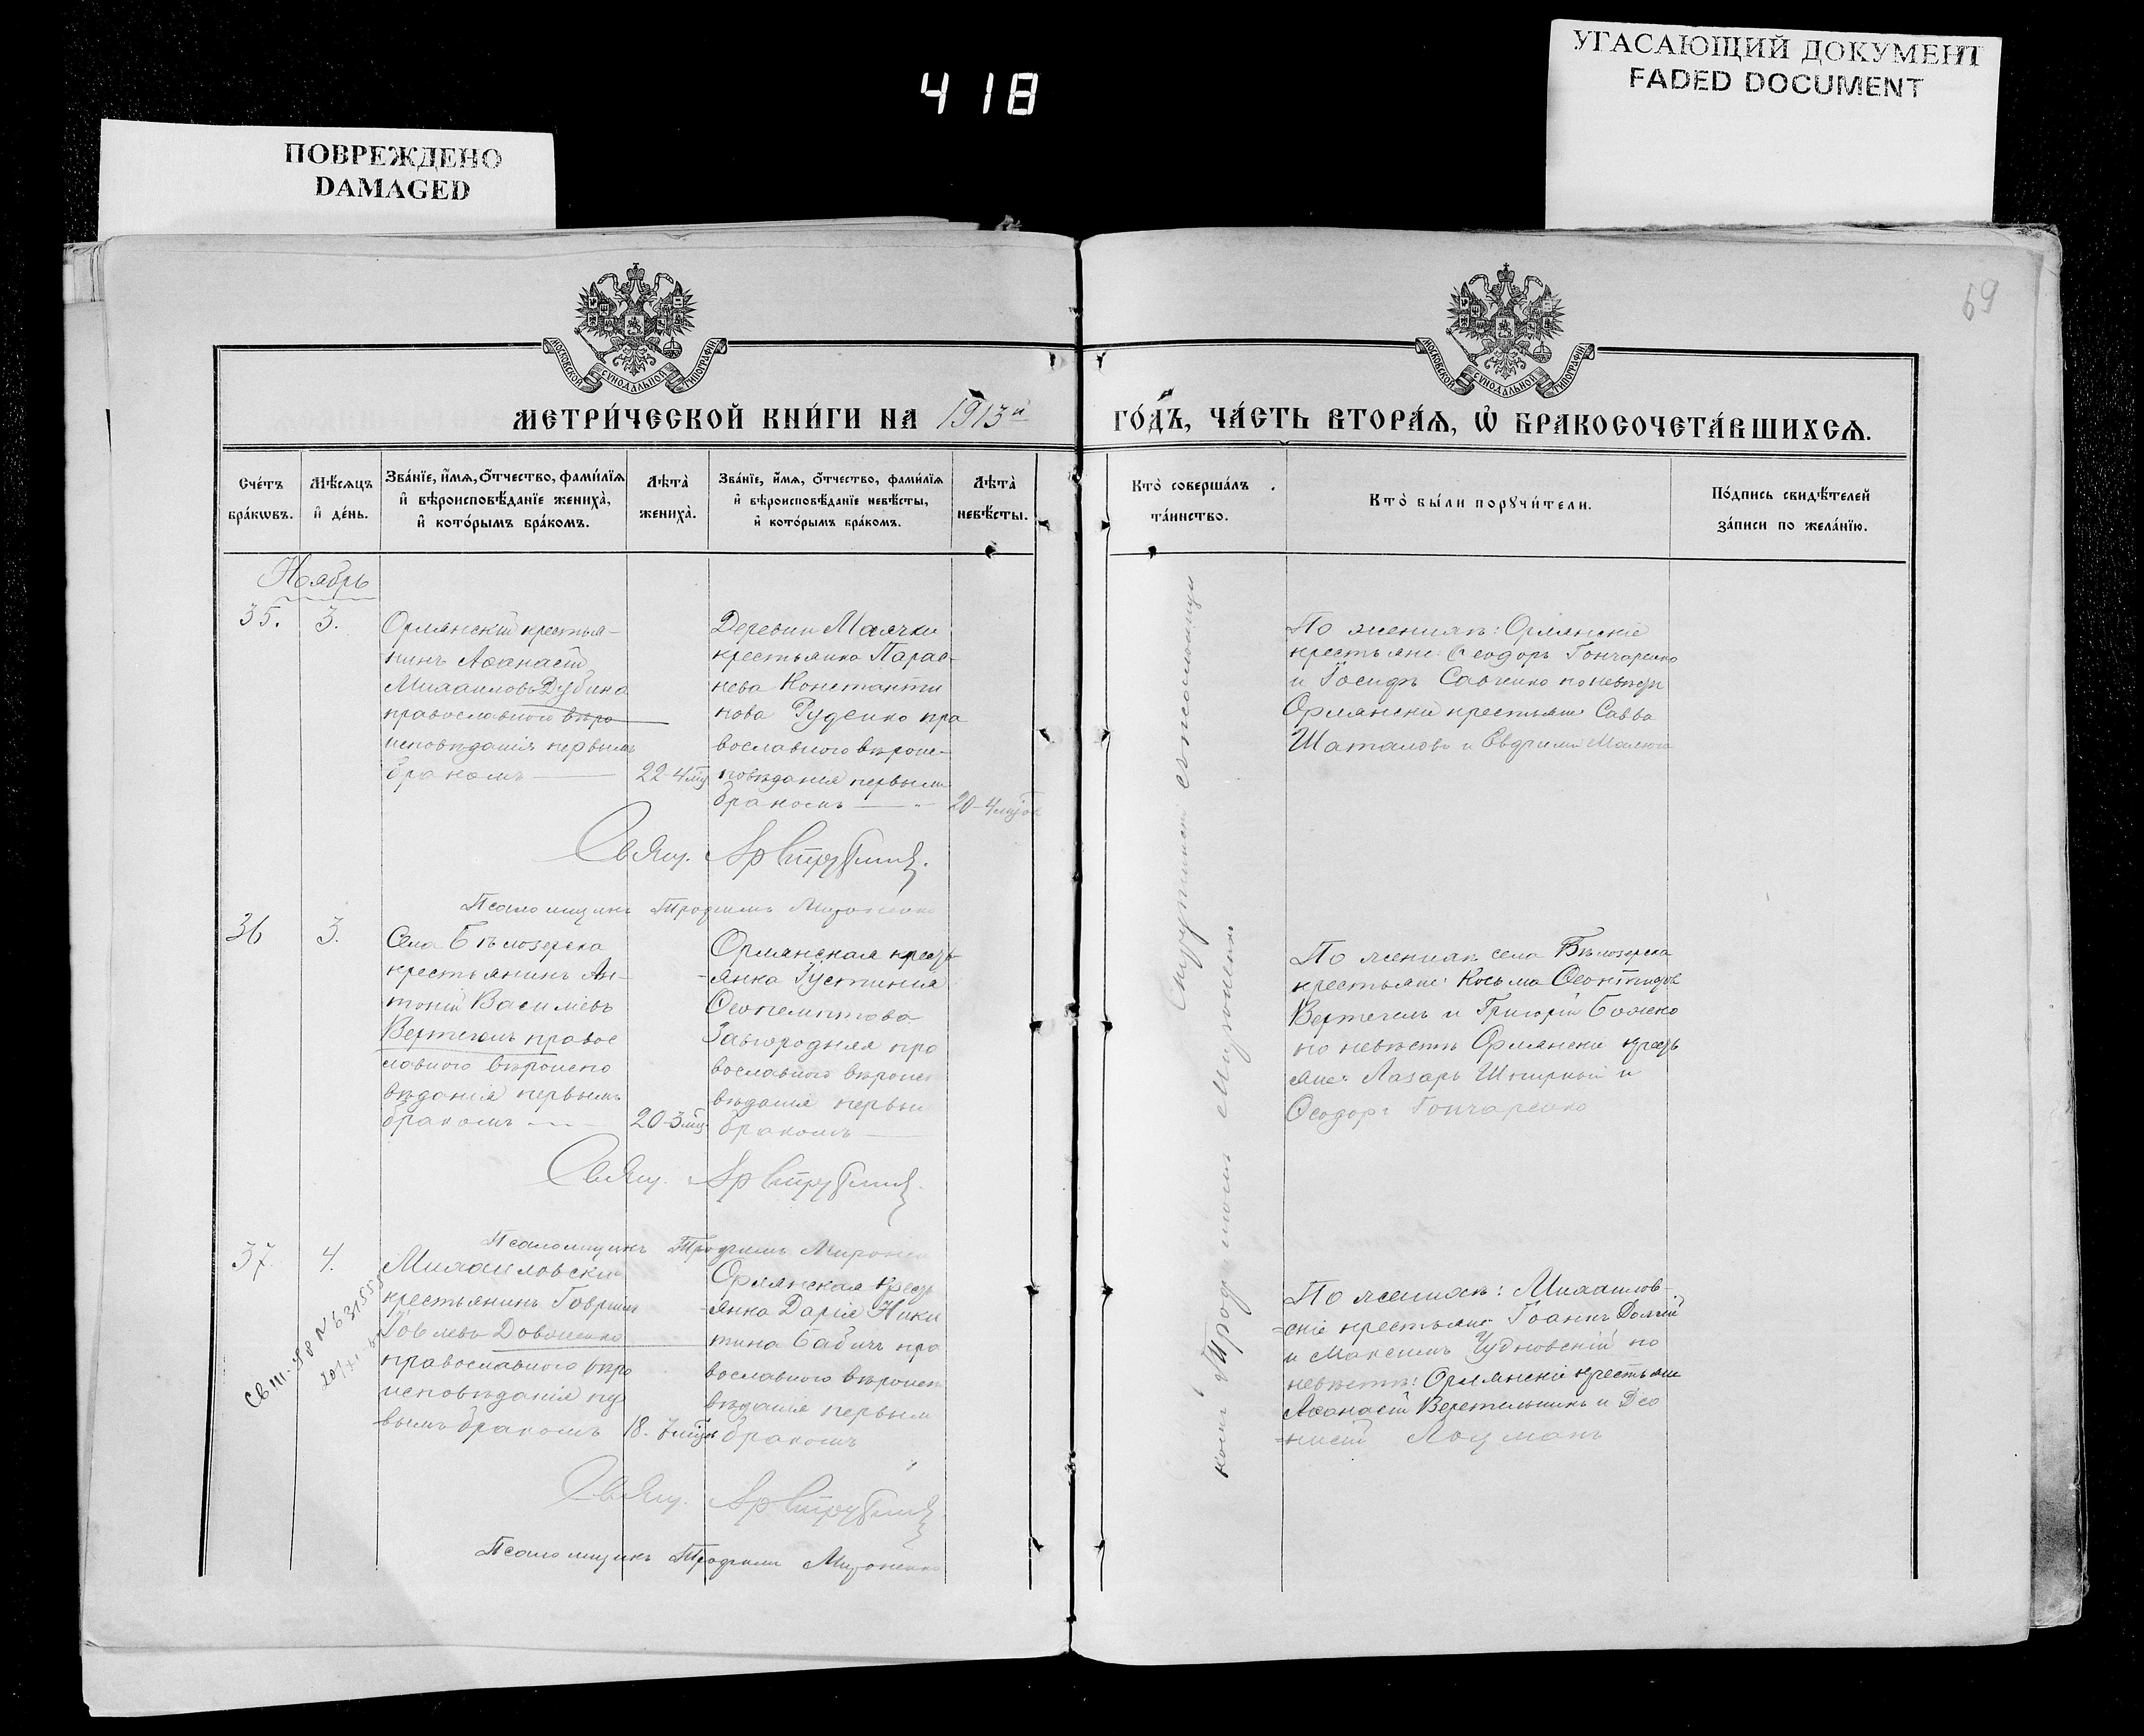 418
УГАСАЮЩИЙ ДОКУМЕНТ
FADED DOCUMENT
ПОВРЕЖДЕНО
DAMAGED
69
МОСКОВСКОЙ СУНОДАЛЬНОЙ ТИПОГРАФІИ
МОСКОВСКОЙ СУНОДАЛЬНОЙ ТИПОГРАФІИ
МЕТРИ́ЧЕСКОЙ КНИ́ГИ НА 1913й
ГО́ДЪ, ЧА́СТЬ ВТОРА́Я, Ѡ БРАКОСОЧЕТА́ВШИХСЯ.
Сче́тъ бра́кѡвъ.
Мѣ́сяцъ и де́нь.
Зва́нїе, и́мя, о́тчество, фами́лїя
и вѣроисповѣ́данїе жениха̀,
и кото́рымъ бра́комъ.
Лѣта̀ жениха̀.
Зва́нїе, и́мя, о́тчество, фами́лїя
и вѣроисповѣ́данїе невѣ́сты,
и кото́рымъ бра́комъ.
Лѣта̀ невѣ́сты.
Кто̀ соверша́лъ та́инство.
Кто̀ бы́ли порꙋчи́тели.
По́дпись свидѣ́телей за́писи по жела́нїю.
Ноябрь
35.
3.
Орлянскій крестья-
нинъ Аѳанасій
Михаиловъ Дубина
православнаго вѣро
исповѣданія первымъ
бракомъ
22-4 мц
Деревни Маячки
крестьянка Парас-
кева Константи
нова Руденко пра
вославнаго вѣроис-
повѣданія первымъ
бракомъ
20-4
По женихѣ: Орлянскіе
крестьяне: Ѳеодоръ Гончаренко
и Іосифъ Савченко по невѣстѣ
Орлянскіе крестьяне Савва
Шаталовъ и
Свящ.
Псаломщикъ Трофимъ Мироненко
36
3.
Села Бѣлозерка
крестьянинъ Ан-
тоній Василіевъ
Вертегелъ правос
лавнаго вѣроиспо
вѣданія первымъ
бракомъ
20-3 мц
Орлянская крест-
янка Іустинія
Загородняя пра
вославнаго вѣроисп
вѣданія первым
бракомъ
По женихѣ села Бѣлозерка
крестьяне: Косьма
Вертегелъ и Григорій Божко
по невѣстѣ Орлянскіе крестъ
яне: Лазарь и
Ѳеодоръ Гончаренко
Свящ.
Псаломщикъ Трофимъ Мироненко
37
4.
Михаиловскій
крестьянинъ Гавріилъ
Іовлевъ Довженко
православнаго вѣро
исповѣданія пер
вымъ бракомъ
18. 7
Орлянская крест
янка Дарія Ники
тина Бабичъ пра
вославнаго вѣроисп
вѣданія первым
бракомъ
По женихѣ: Михаилов
скіе крестьяне Іоаннъ
и Максимъ Чудновскій по
невѣстѣ: Орлянскіе крестьяне
Аѳанасій Веретельникъ и Дио
нисій Лоцманъ
Свящ.
Псаломщикъ Трофимъ Мироненко
съ псаломщи
комъ Трофимомъ Мироненко